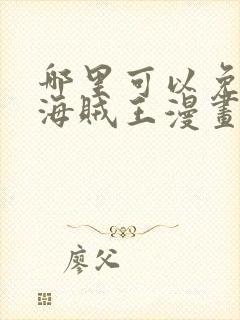 哪里可以免
海贼王漫畫
廖父